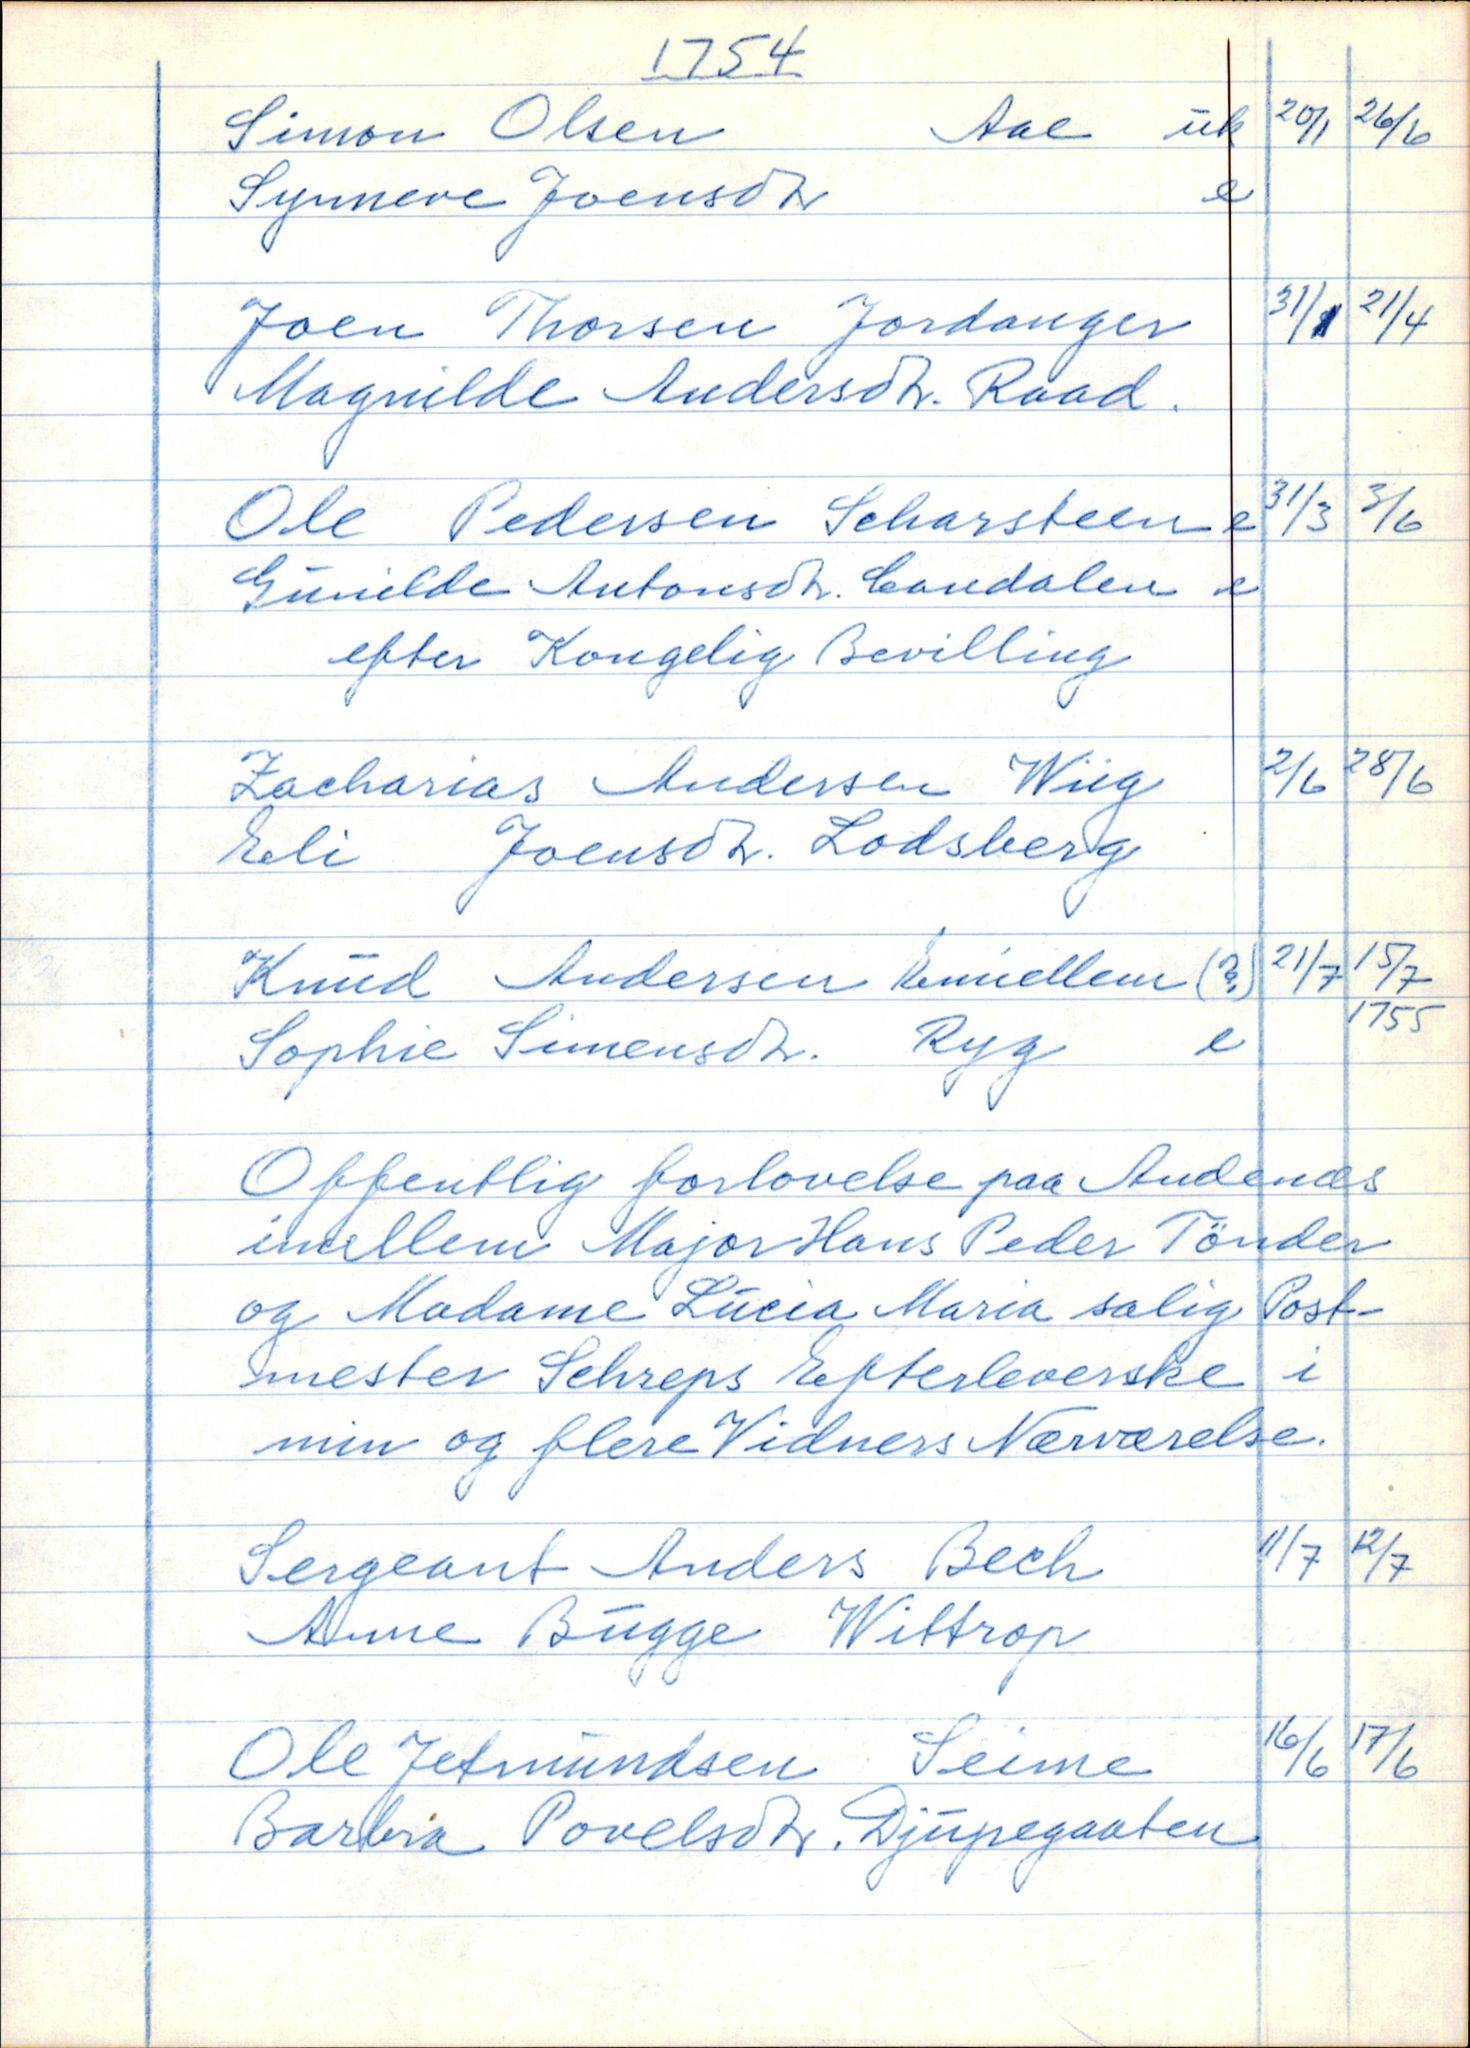 1754
Simon Olsen Aae uk 20/1 26/6
Synneve Joensdtr e
Joen Thorsen Jordanger 31/1 21/4
Magnilde Andersdtr. Raad.
Ole Pedersen Scharsteen e 31/3 3/6
Gunilde Antonsdtr. Candalen e
efter Kongelig Bevilling
Zacharias Andersen Wiig 2/6 28/6
Eli Joensdtr. Lodsberg
Knud Andersen Emellem (?) 21/7 15/7
1755
Sophie Simensdtr. Ryg e
Offentlig forlovelse paa Andenæs
imellem Major Hans Peder Tönder
og Madame Lucia Maria salig Post-
mester Schreps Efterleverske i
min og flere Vidners Nærværelse.
Sergeant Anders Bech 11/7 12/7
Anne Bugge Wittrop
Ole Jetmundsen Seime 16/6 17/6
Barbra Povelsdtr. Djupegaaten